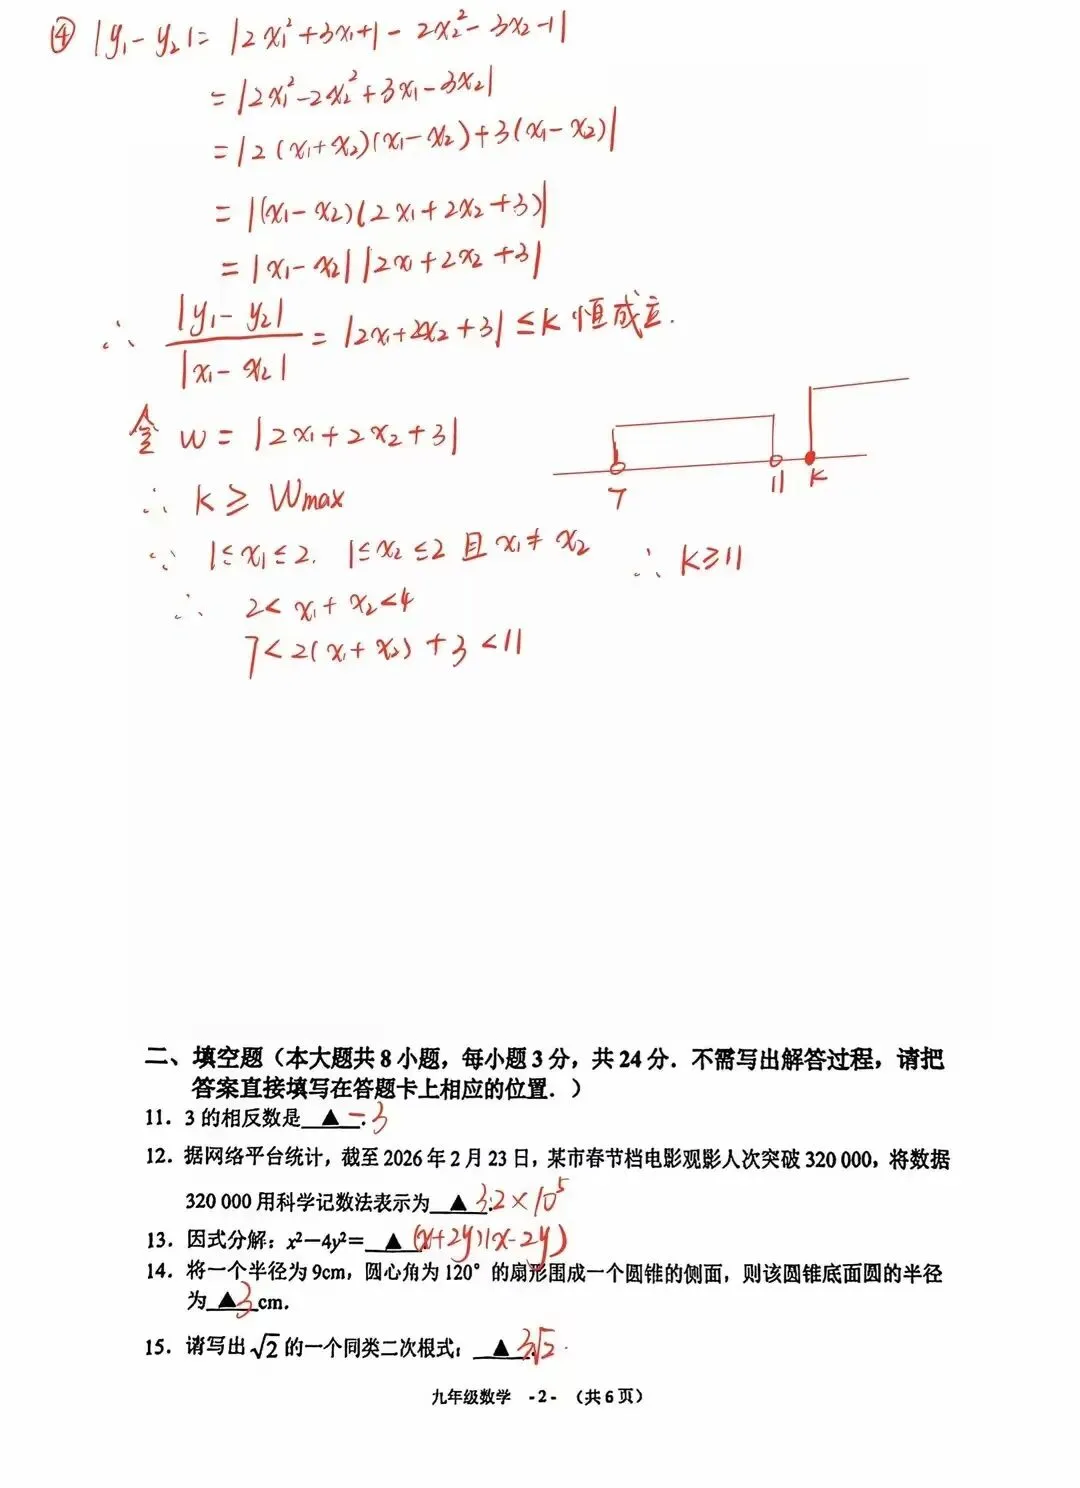 ④ |y₁-y₂|= |2x₁²+3x₁+1-2x₂²-3x₂-1|
= |2x₁²-2x₂²+3x₁-3x₂|
= |2(x₁+x₂)(x₁-x₂)+3(x₁-x₂)|
= |(x₁-x₂)(2x₁+2x₂+3)|
= |x₁-x₂| |2x₁+2x₂+3|
∴ |y₁-y₂|/|x₁-x₂| = |2x₁+2x₂+3| ≤K 恒成立.
令 w = |2x₁+2x₂+3|
7 11 K
∴ K ≥ Wmax
∵ 1≤x₁≤2. 1≤x₂≤2 且 x₁≠x₂ ∴ K≥11
∴ 2< x₁+x₂<4
7<2(x₁+x₂)+3<11
二、填空题（本大题共8小题，每小题3分，共24分．不需写出解答过程，请把
答案直接填写在答题卡上相应的位置．）
11．3的相反数是 ▲ . -3
12．据网络平台统计，截至2026年2月23日，某市春节档电影观影人次突破320 000，将数据
320 000用科学记数法表示为 ▲ . 3.2×10⁵
13．因式分解：x²－4y²= ▲ (x+2y)(x-2y)
14．将一个半径为9cm，圆心角为120°的扇形围成一个圆锥的侧面，则该圆锥底面圆的半径
为 ▲ 3 cm．
15．请写出√2的一个同类二次根式： ▲ 3√2 .
九年级数学 -2- （共6页）